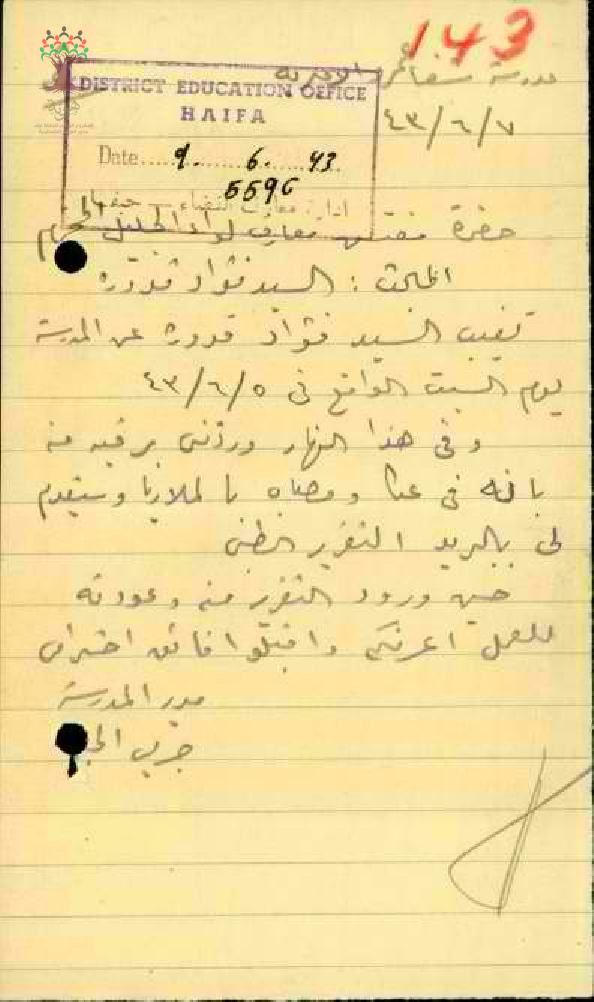 143
مدرسة شفاعمرو الاميرية
٤٣/٦/٧
DISTRICT EDUCATION OFFICE
HAIFA
Date..... 9. 6. 43
5596
ادارة معارف القضاء - حيفا
حضرة مفتش معارف لواء الجليل المحترم
السيد فؤاد قدورة
تغيب السيد فؤاد قدورة عن المدرسة
يوم السبت الواقع في ٤٣/٦/٥
و في هذا النهار وردتني برقيه منه
بانه في عكا ومصاب بالملاريا وسيقدم
لي بالبريد التقرير الطبي
حين ورود التقرير منه وعودته
للعمل اعرفكم واقبلوا فائق احترامي
مدير المدرسة